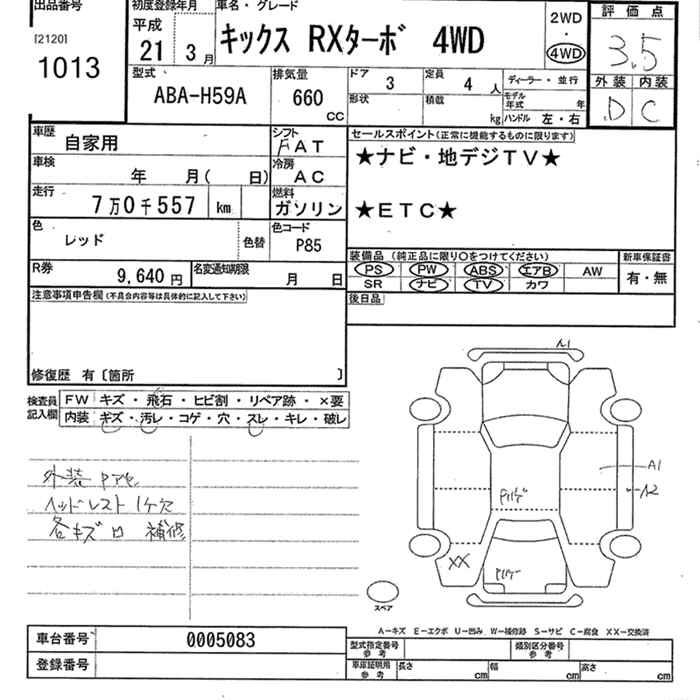 出品番号
[2120]
1013
初度登録年月
平成
21年 3月
車名・グレード
キックス RXターボ 4WD
2WD
・
4WD
評価点
3.5
外装 内装
D C
型式
ABA-H59A
排気量
660
CC
ドア 3
形状
定員 4 人
積載 kg
ディーラー・並行
モデル年式 年
ハンドル 左・右
車歴
自家用
シフト
FAT
車検
年 月( 日)
冷房
AC
走行
7万0千557 km
燃料
ガソリン
色
レッド
色替
色コード
P85
R券
9,640 円
名変通知期限
月 日
セールスポイント(正常に機能するものに限ります)
★ナビ・地デジTV★
★ETC★
装備品(純正品に限り○をつけてください)
新車保証書
PS PW ABS エアB AW
SR ナビ TV カワ
有・無
後日品
注意事項申告欄(不具合内容等は具体的に記入して下さい)
修復歴 有〔箇所 〕
検査員
記入欄
FW キズ・飛石・ヒビ割・リペア跡・×要
内装 キズ・汚レ・コゲ・穴・スレ・キレ・破レ
外装 Pアセ
ヘッドレスト 1ケ欠
各キズ 補修
A1
A1
A2
XX
スペア
A-キズ E-エクボ U-凹み W-補修跡 S-サビ C-腐食 XX-交換済
車台番号 0005083
登録番号
型式指定番号
参考
類別区分番号
参考
車庫証明用
参考
長さ cm 幅 cm 高さ cm